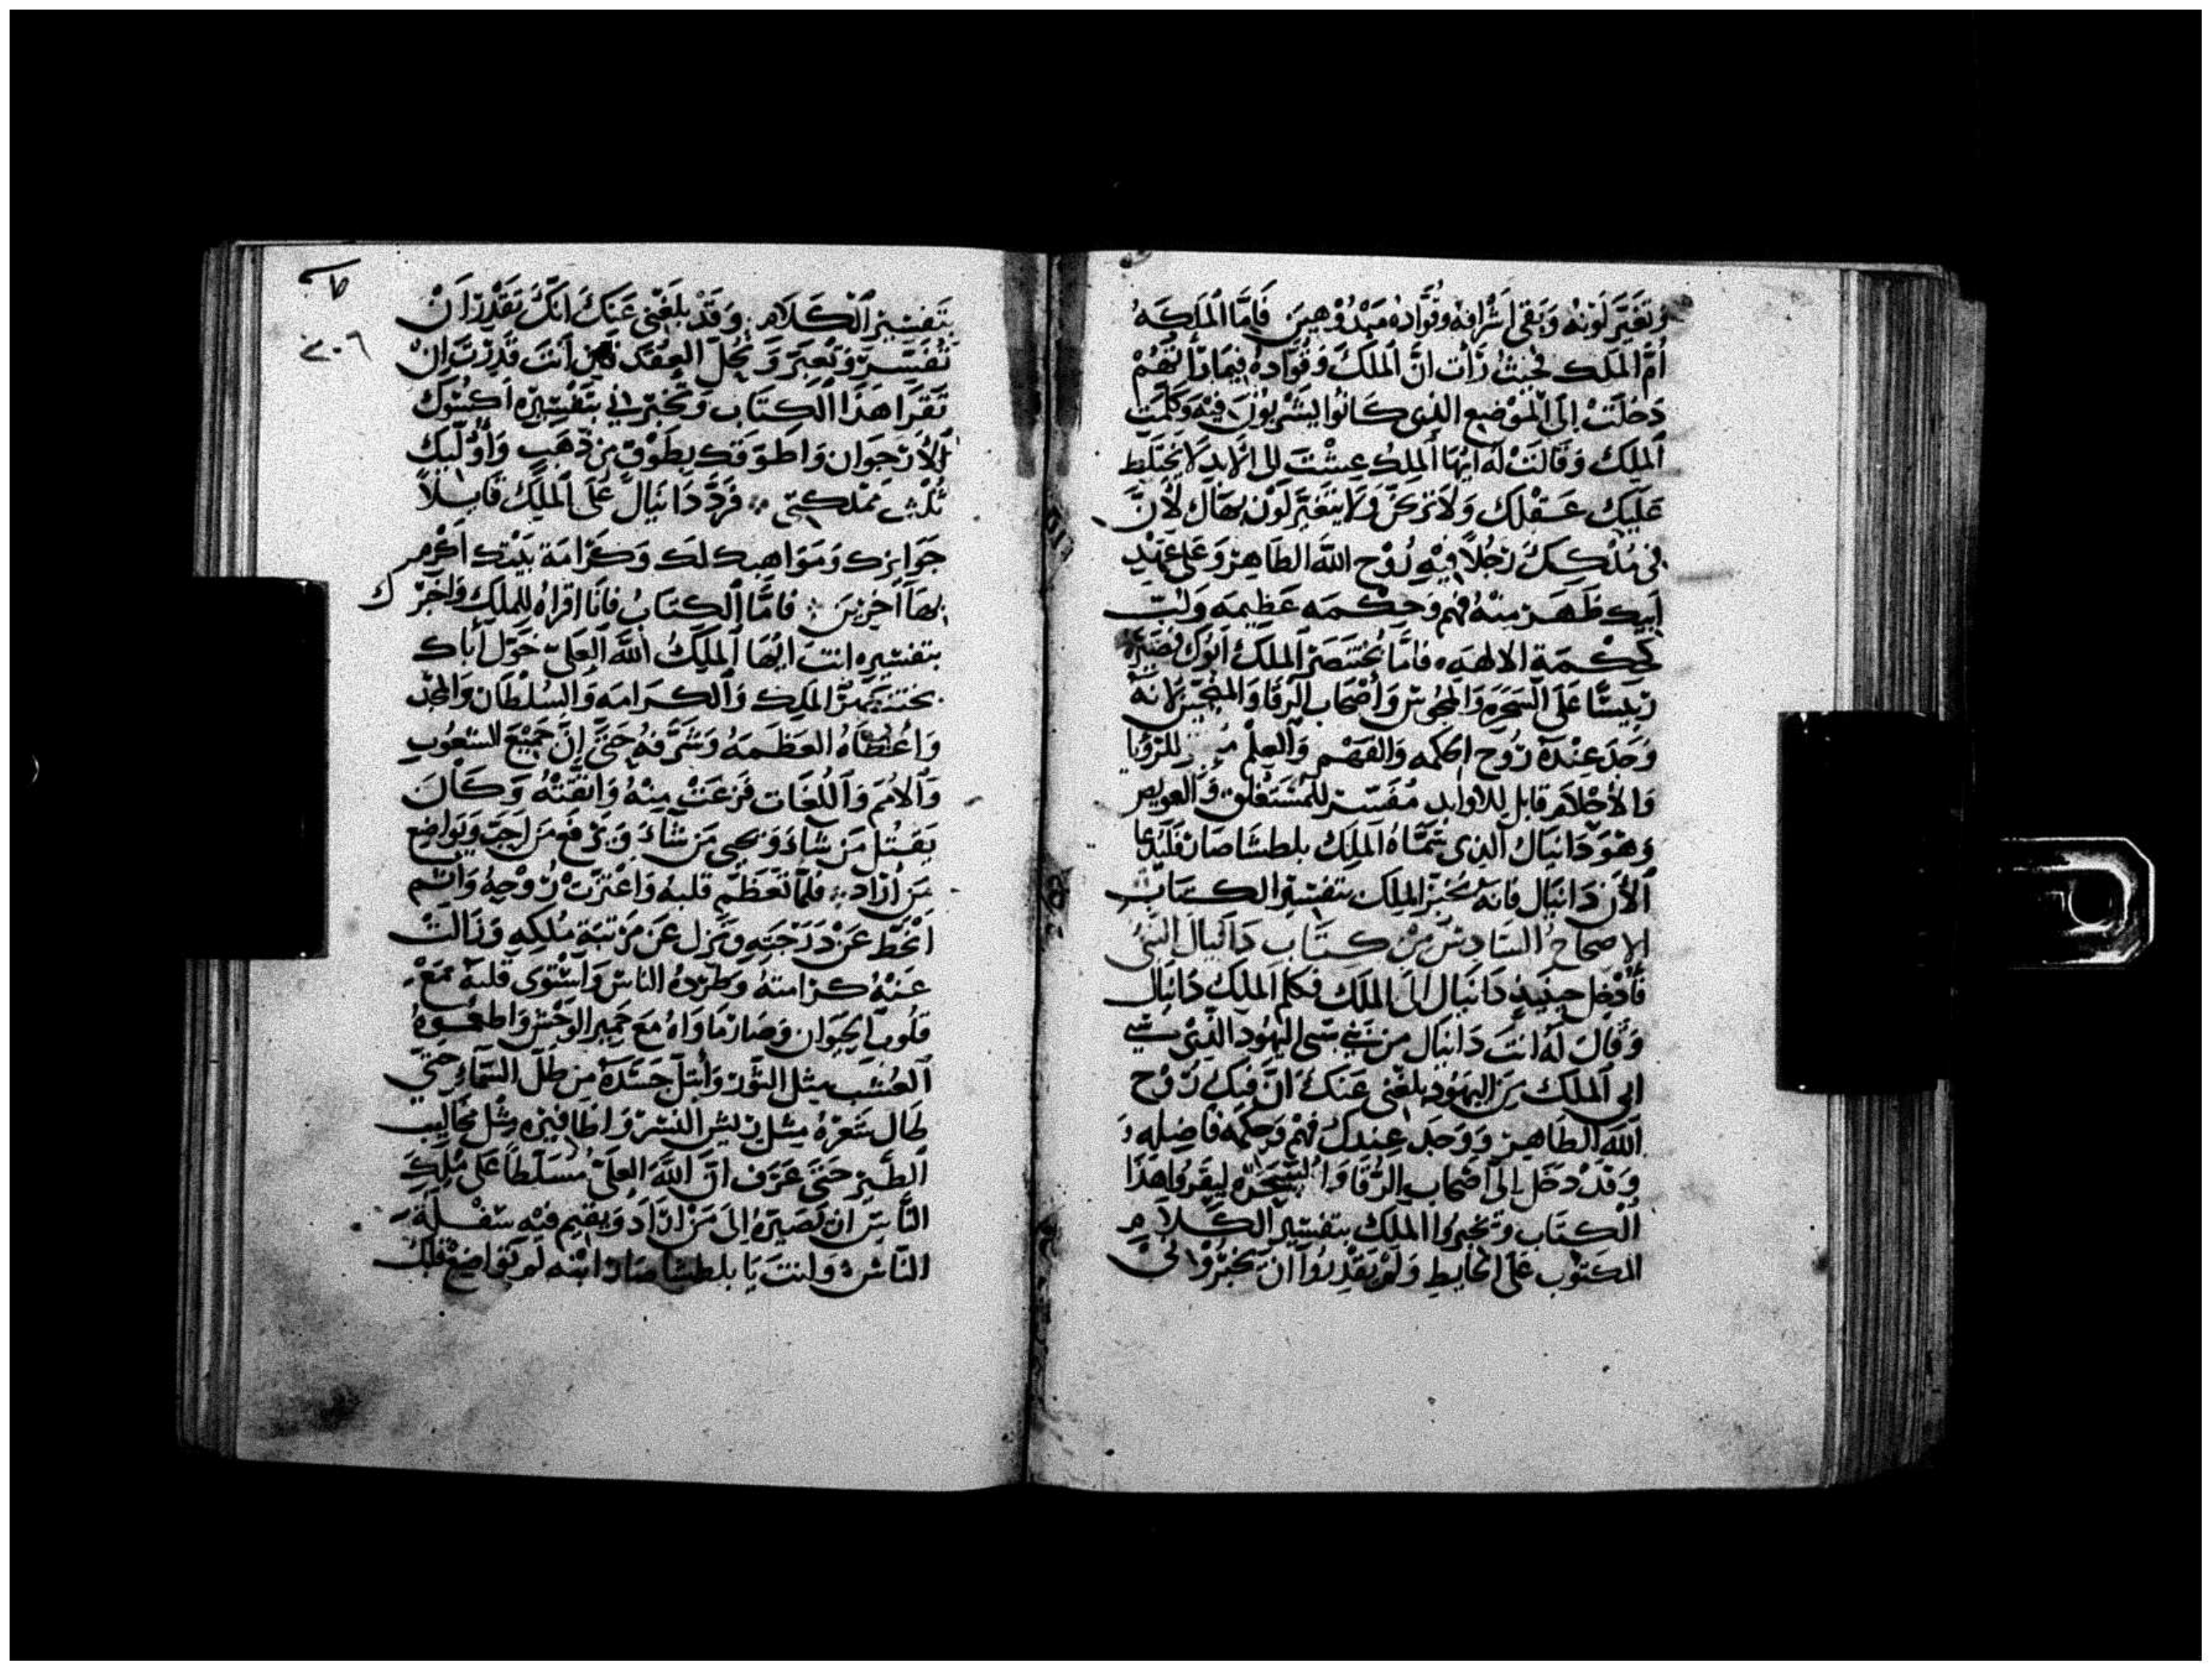 وتغير لونه وبقى اشرافه وقواده مبدوهين فاما الملكه
ام الملك بحيث رات ان الملك وقواده فيما دالهم
دخلت الى الموضع الذى كانوا يشربون فيه وكلمت
الملك وقالت له ايها الملك عشت الى الابد لا يختلط
عليك عقلك ولا تزكن ولا يتغير لون بهاك لان
فى ملكك رجلا فيه روح الله الطاهر وعلى عهد
ابيك ظهر منه فهم وحكمه عظيمه ولب
كحكمة الالهه فاما بختنصر الملك ابوك نصبه
رييسا على السحره والمجوس واصحاب الرقا والمنجمين لانه
وجد عنده روح الحكمه والفهم والعلم للرويا
والاحلام قابل للاوابد مفسر للمستغلق والعويص
وهو دانيال الذى سماه الملك بلطشاصار فليدعا
الان دانيال فانه يخبر الملك بتفسير الكتاب
الاصحاح السادس من كتاب دانيال النبى
فادخل حينيذ دانيال الى الملك فكلم الملك دانيال
وقال له انت دانيال من بنى سبى اليهود الذى سبي
ابى الملك من اليهود بلغنى عنك ان فيك روح
الله الطاهر ووجد عندك فهم وحكمه فاضله و
وقد دخل الى اصحاب الرقا والسحره ليقروا هذا
الكتاب ويخبروا الملك بتفسير الكلام
المكتوب على الحايط ولم يقدروا ان يخبروا نى
٢٠٦
بتفسير الكلام وقد بلغنى عنك انك تقدر ان
تفسر وتعبر وتحل العقد فان انت قدرت ان
تقرا هذا الكتاب وتخبرنى بتفسيره اكسوك
الارجوان واطوقك بطوق من ذهب واوليك
ثلث مملكتى فرد دانيال على الملك قايلا
جوايزك ومواهبك لك وكرامة بيتك اكرم
بها اخرين فاما الكتاب فانا اقراه للملك واخبرك
بتفسيره انت ايها الملك الله العلى خول اباك
بختنصر الملك والكرامه والسلطان والمجد
واعطاه العظمه وشرفه حتى ان جميع الشعوب
والامم واللغات فزعت منه واتقته وكان
يقتل من شاء ويحيى من شاء ويرفع من احب ويواضع
من اراد فلما تعظم قلبه واعتزت روحه واثم
انحط عن درجته ونزل عن مرتبة ملكه وزالت
عنه كرامته وطرده الناس واستوى قلبه مع
قلوب الحيوان وصار ماواه مع حمير الوحش واطعموه
العشب مثل الثور وابتل جسده من طل السماء حتى
طال شعره مثل ريش النسر واظافيره مثل مخاليب
الطير حتى عرف ان الله العلى مسلطا على ملك
الناس ان يصيره الى من اراد ويقيم فيه سفلة
الناس وانت يا بلطشاصار ابنه لم تواضع قلبك